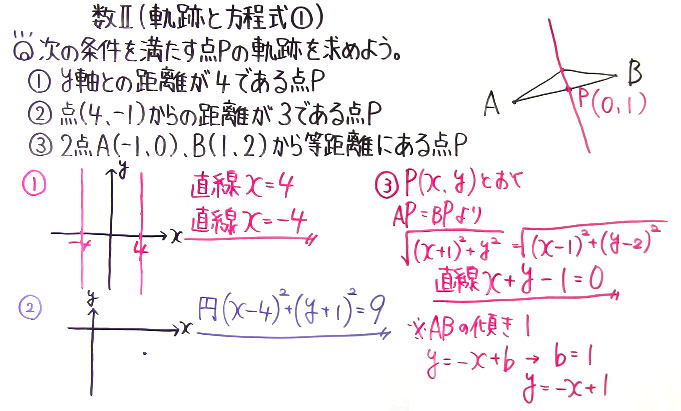 数Ⅱ(軌跡と方程式①)
次の条件を満たす点Pの軌跡を求めよう。
① y軸との距離が4である点P
② 点(4,-1)からの距離が3である点P
③ 2点A(-1,0)、B(1,2)から等距離にある点P
A
B
P(0,1)
①
y
x
-4
4
直線 x=4
直線 x=-4
②
y
x
円(x-4)²+(y+1)²=9
③ P(x,y)とおく
AP=BPより
√(x+1)²+y² = √(x-1)²+(y-2)²
直線 x+y-1=0
※ABの傾き1
y=-x+b → b=1
y=-x+1